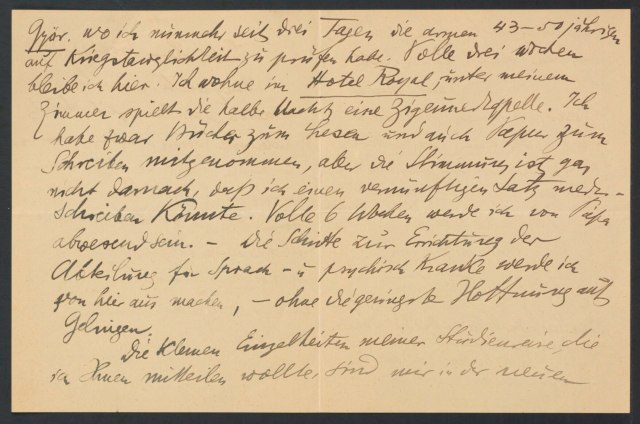 Győr, wo ich nunmehr seit drei Tagen die armen 43-50 jährigen
auf Kriegstauglichkeit zu prüfen habe. Volle drei Wochen
bleibe ich hier. Ich wohne im Hotel Royal, unter meinem
Zimmer spielt die halbe Nacht eine Zigeunerkapelle. Ich
habe zwar Bücher zum Lesen und auch Papier zum
Schreiben mitgenommen, aber die Stimmung ist gar
nicht darnach, daß ich einen vernünftigen Satz nieder-
schreiben könnte. Volle 6 Wochen werde ich von Pápa
abwesend sein. – Die Schritte zur Errichtung der
Abteilung für Sprach- u psychisch Kranke werde ich
von hier aus machen, – ohne die geringste Hoffnung auf
Gelingen.
Die kleinen Einzelheiten meiner Studienreise, die
ich Ihnen mitteilen wollte, sind mir in der neuen